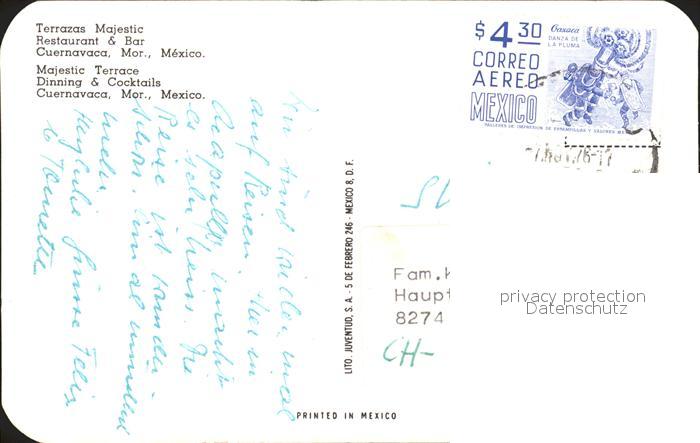 Terrazas Majestic
Restaurant & Bar
Cuernavaca, Mor., México.
Majestic Terrace
Dinning & Cocktails
Cuernavaca, Mor., Mexico.
$4.30
Oaxaca
DANZA DE
LA PLUMA
CORREO
AEREO
MEXICO
TALLERES DE IMPRESION DE ESTAMPILLAS Y VALORES
sind wieder mal
auf Reisen. Hier in
Acapulco
es sehr heiss. Die
Reise ist
schön.
Herzliche Grüsse Felix
LITO. JUVENTUD, S. A. - 5 DE FEBRERO 246 - MEXICO 8, D. F.
15
Fam.
Haupt
8274
CH-
privacy protection
Datenschutz
PRINTED IN MEXICO